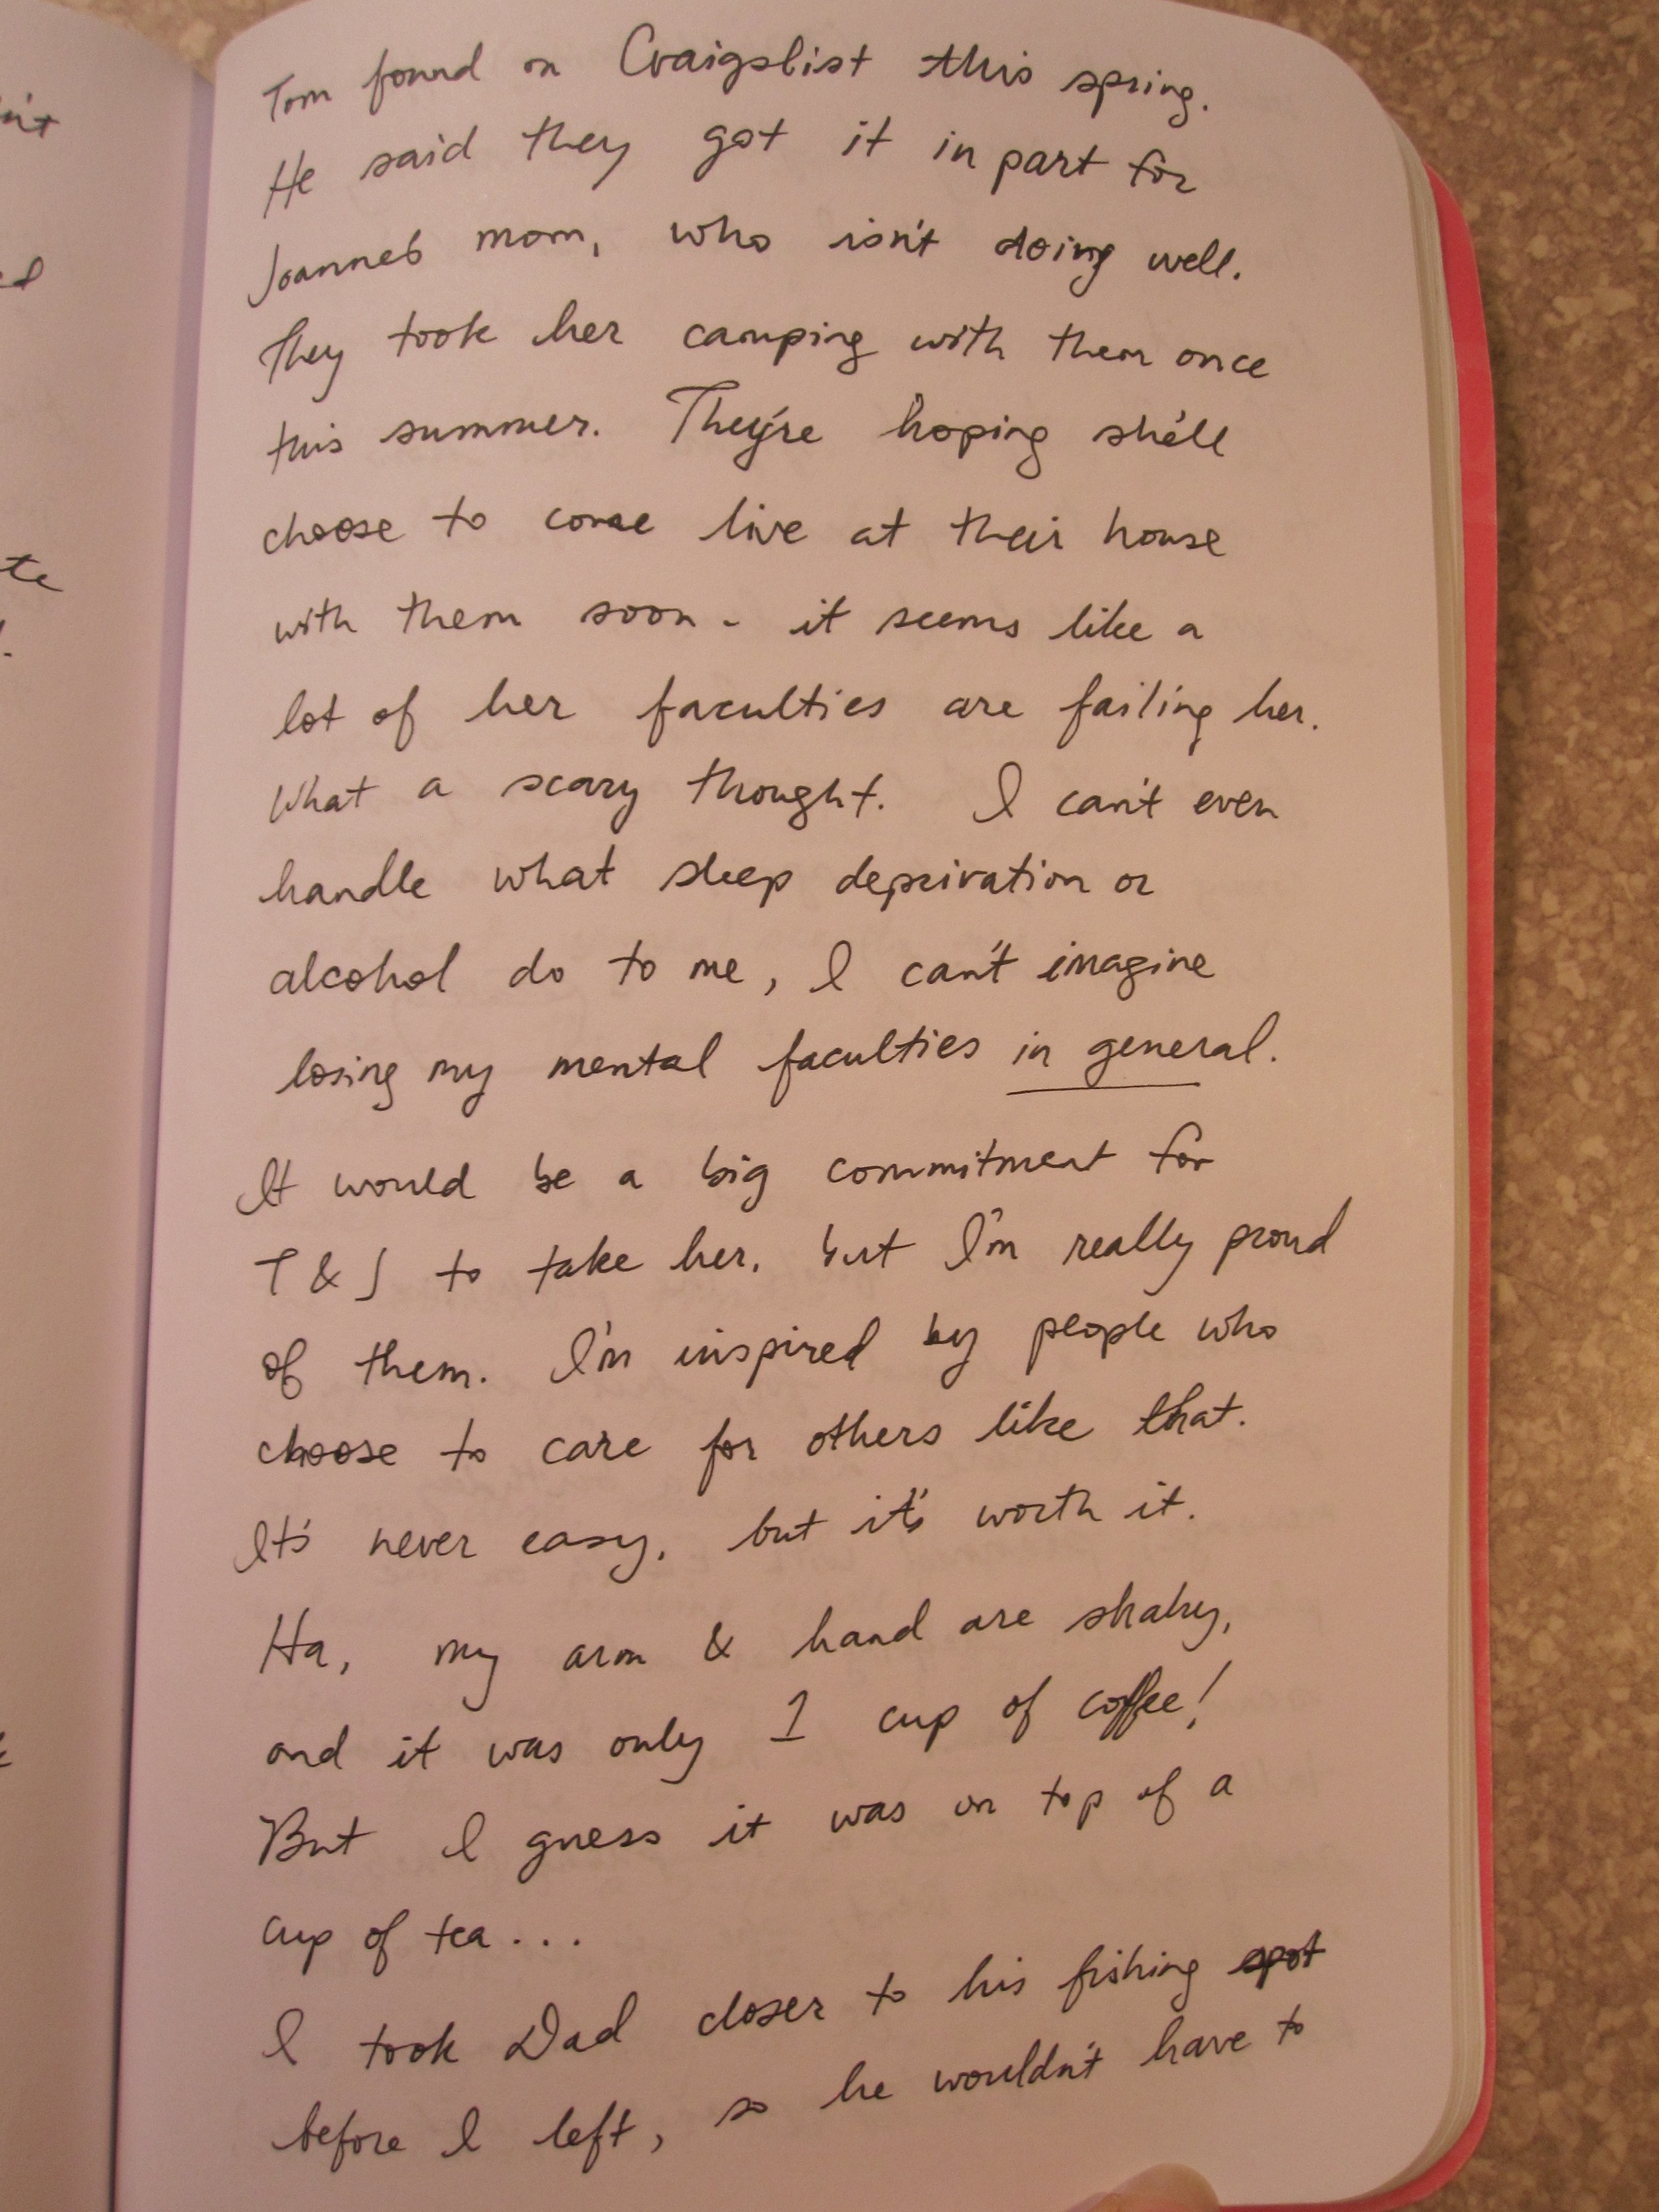 Tom found on Craigslist this spring.
He said they got it in part for
Joanne's mom, who isn't doing well.
They took her camping with them once
this summer. They're hoping she'll
choose to come live at their house
with them soon - it seems like a
lot of her faculties are failing her.
What a scary thought. I can't even
handle what sleep deprivation or
alcohol do to me, I can't imagine
losing my mental faculties in general.
It would be a big commitment for
T & J to take her, but I'm really proud
of them. I'm inspired by people who
choose to care for others like that.
It's never easy, but it's worth it.
Ha, my arm & hand are shaky,
and it was only 1 cup of coffee!
But I guess it was on top of a
cup of tea...
I took Dad closer to his fishing spot
before I left, so he wouldn't have to